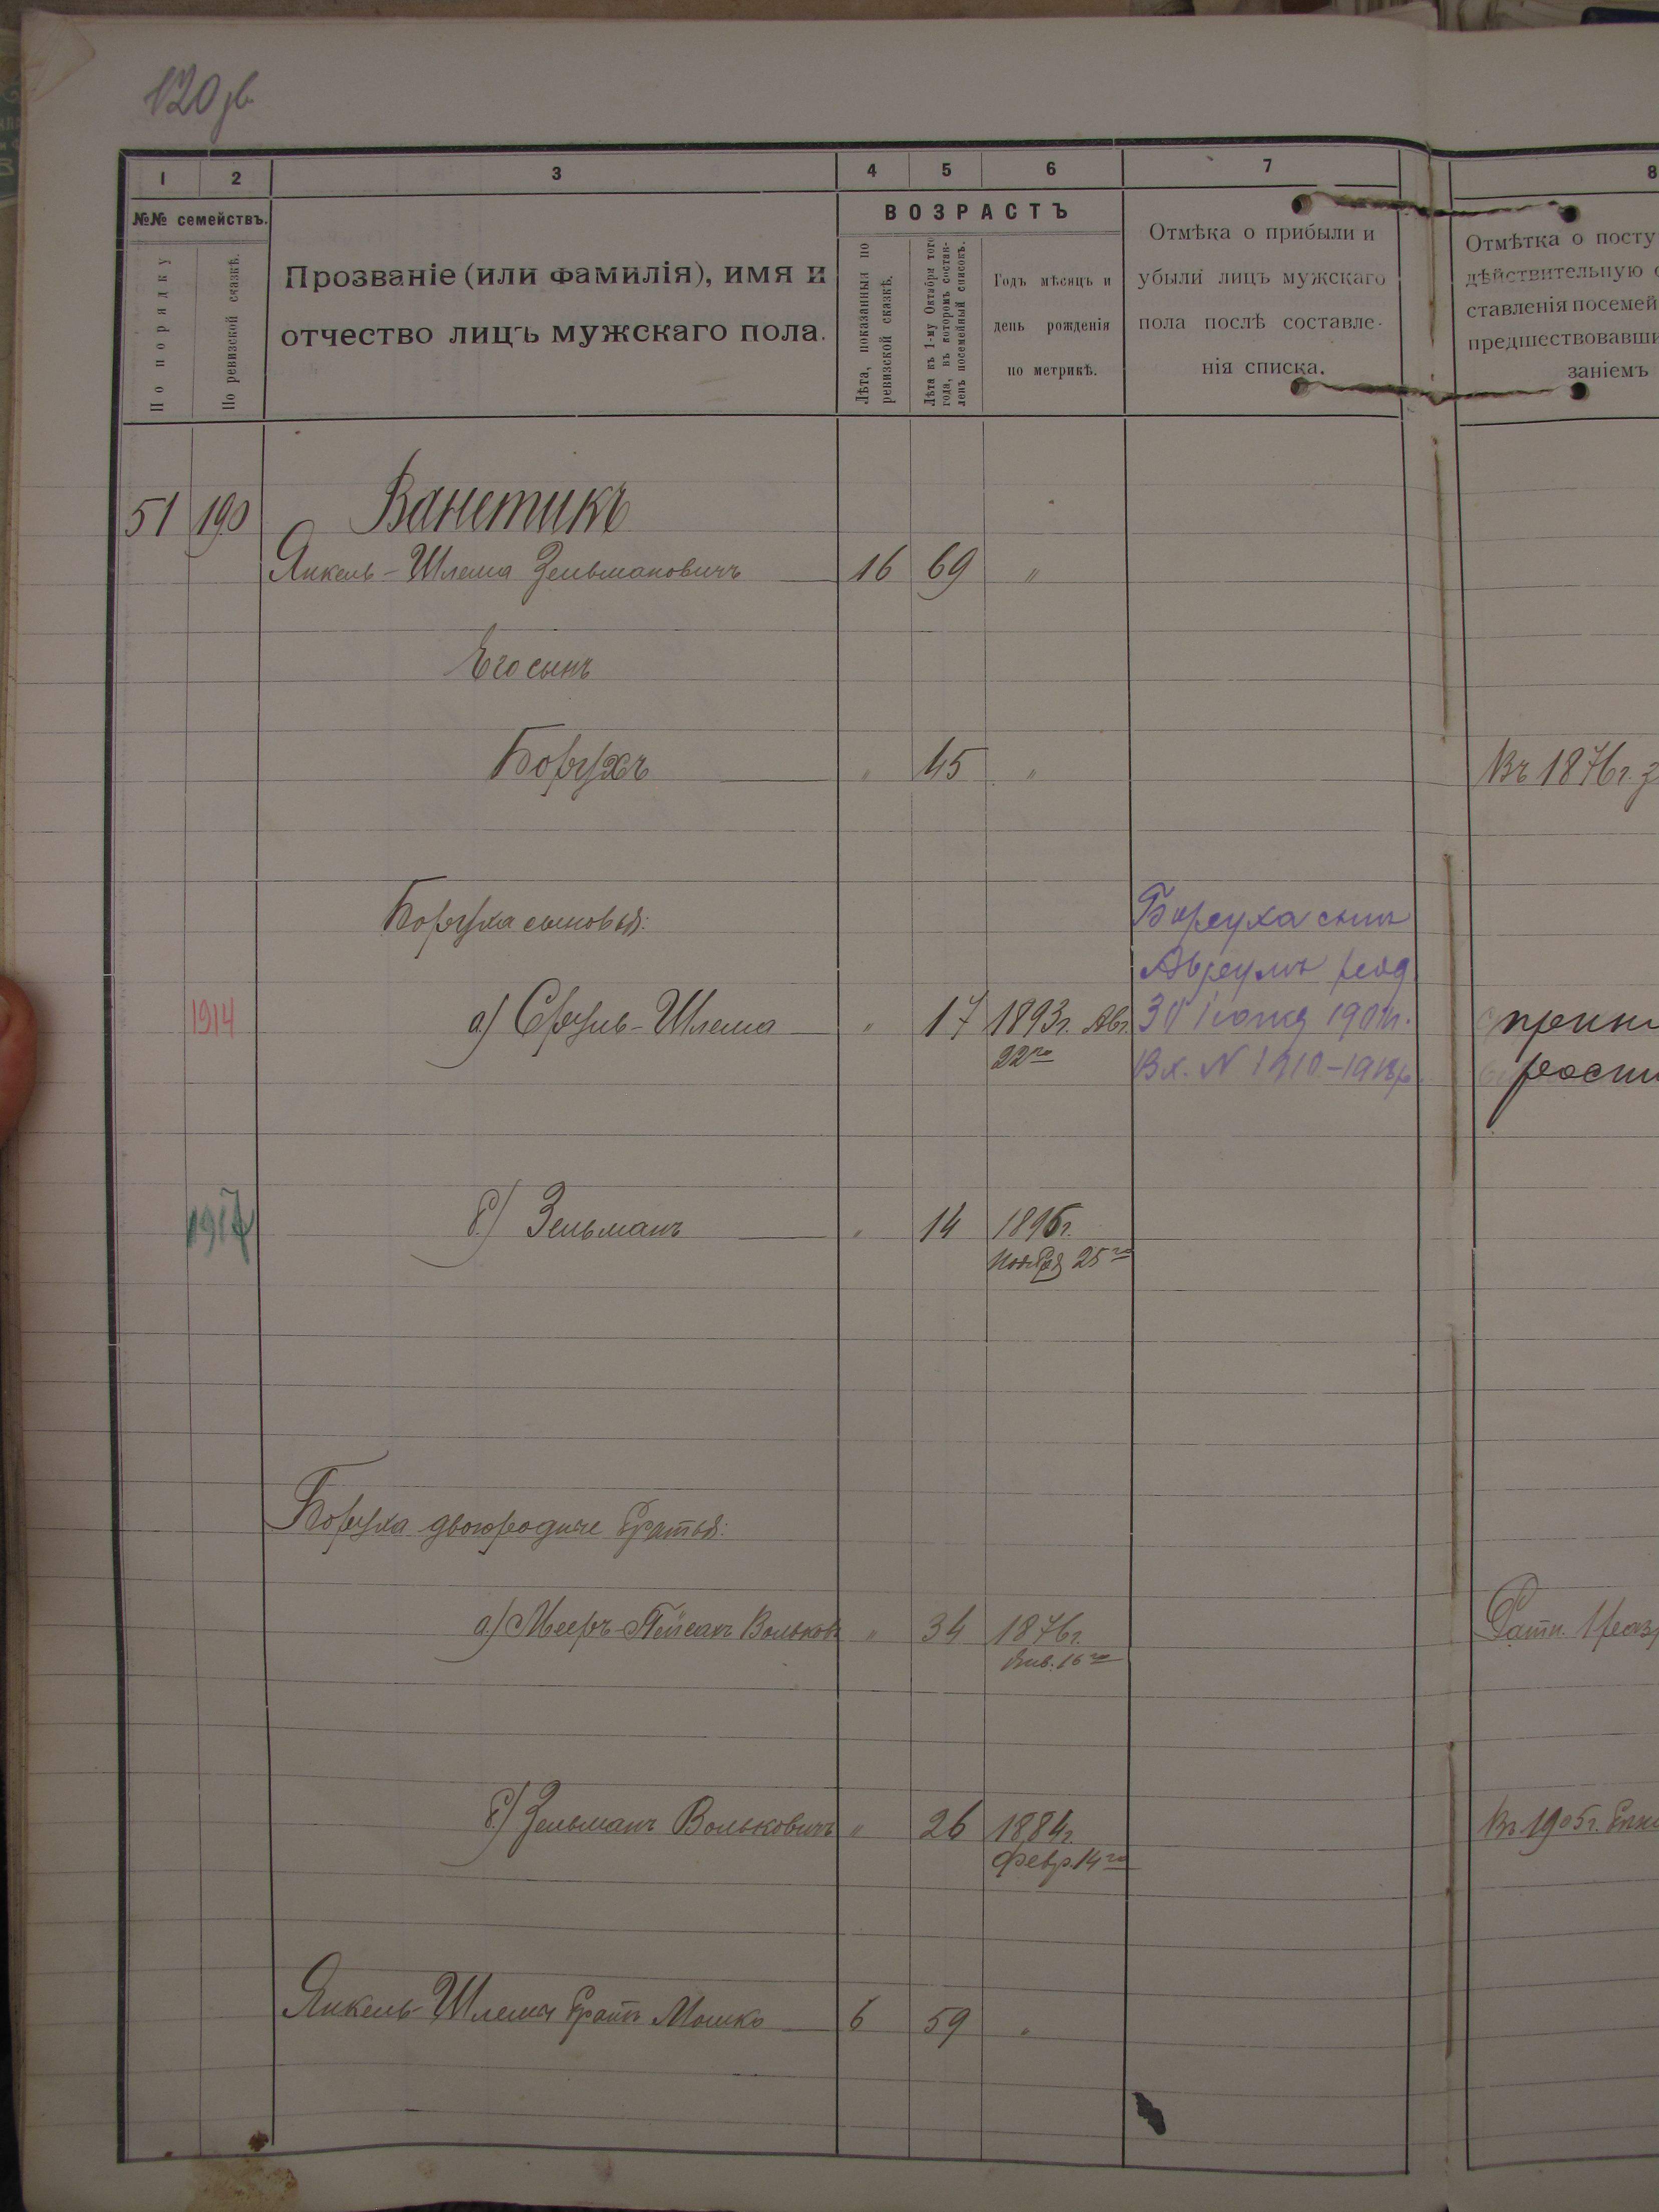 120 об
1 2 3 4 5 6 7 8
№№ семействъ.
По порядку
По ревизской сказкѣ.
Прозваніе (или фамилія), имя и
отчество лицъ мужскаго пола.
ВОЗРАСТЪ
Лѣта, показанныя по
ревизской сказкѣ.
Лѣта къ 1-му Октября того
года, въ которомъ состав-
ленъ посемейный списокъ.
Годъ мѣсяцъ и
день рожденія
по метрикѣ.
Отмѣка о прибыли и
убыли лицъ мужскаго
пола послѣ составле-
нія списка.
Отмѣтка о посту
дѣйствительную
ставленія посемей
предшествовавши
заніемъ
51 190 Ванетикъ
Янкель-Шлема Зельмановичъ 16 69 "
Его сынъ
Борухъ " 45 "
Въ 1876г. з
Боруха сыновья:
Боруха сынъ
Аврумъ род.
1914 а) Сруль-Шлема " 17 1893г. Авг.
22го
30 1901г.
Вх. N 1910-1913г.
прин
рост
1917 б) Зельманъ " 14 1896г.
Ноября 25го
Боруха двоюродные братья:
а) Мееръ-Пейсахъ Вольков " 34 1876г.
Янв. 16го
Ратн. 1 разр
б) Зельманъ Вольковичъ " 26 1884г.
Февр. 14го
Въ 1905г.
Янкель-Шлемы братъ Мошко 6 59 "